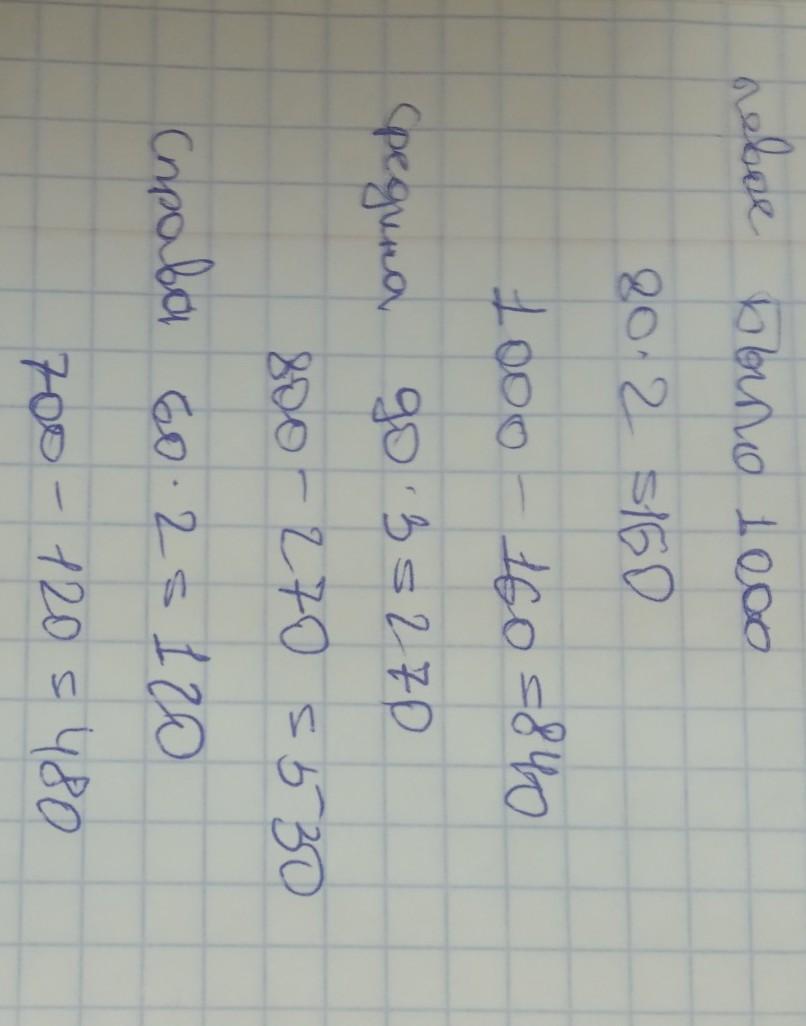 левое было 1000
80·2=160
1000-160=840
средина 90·3=270
800-270=530
справа 60·2=120
700-120=480